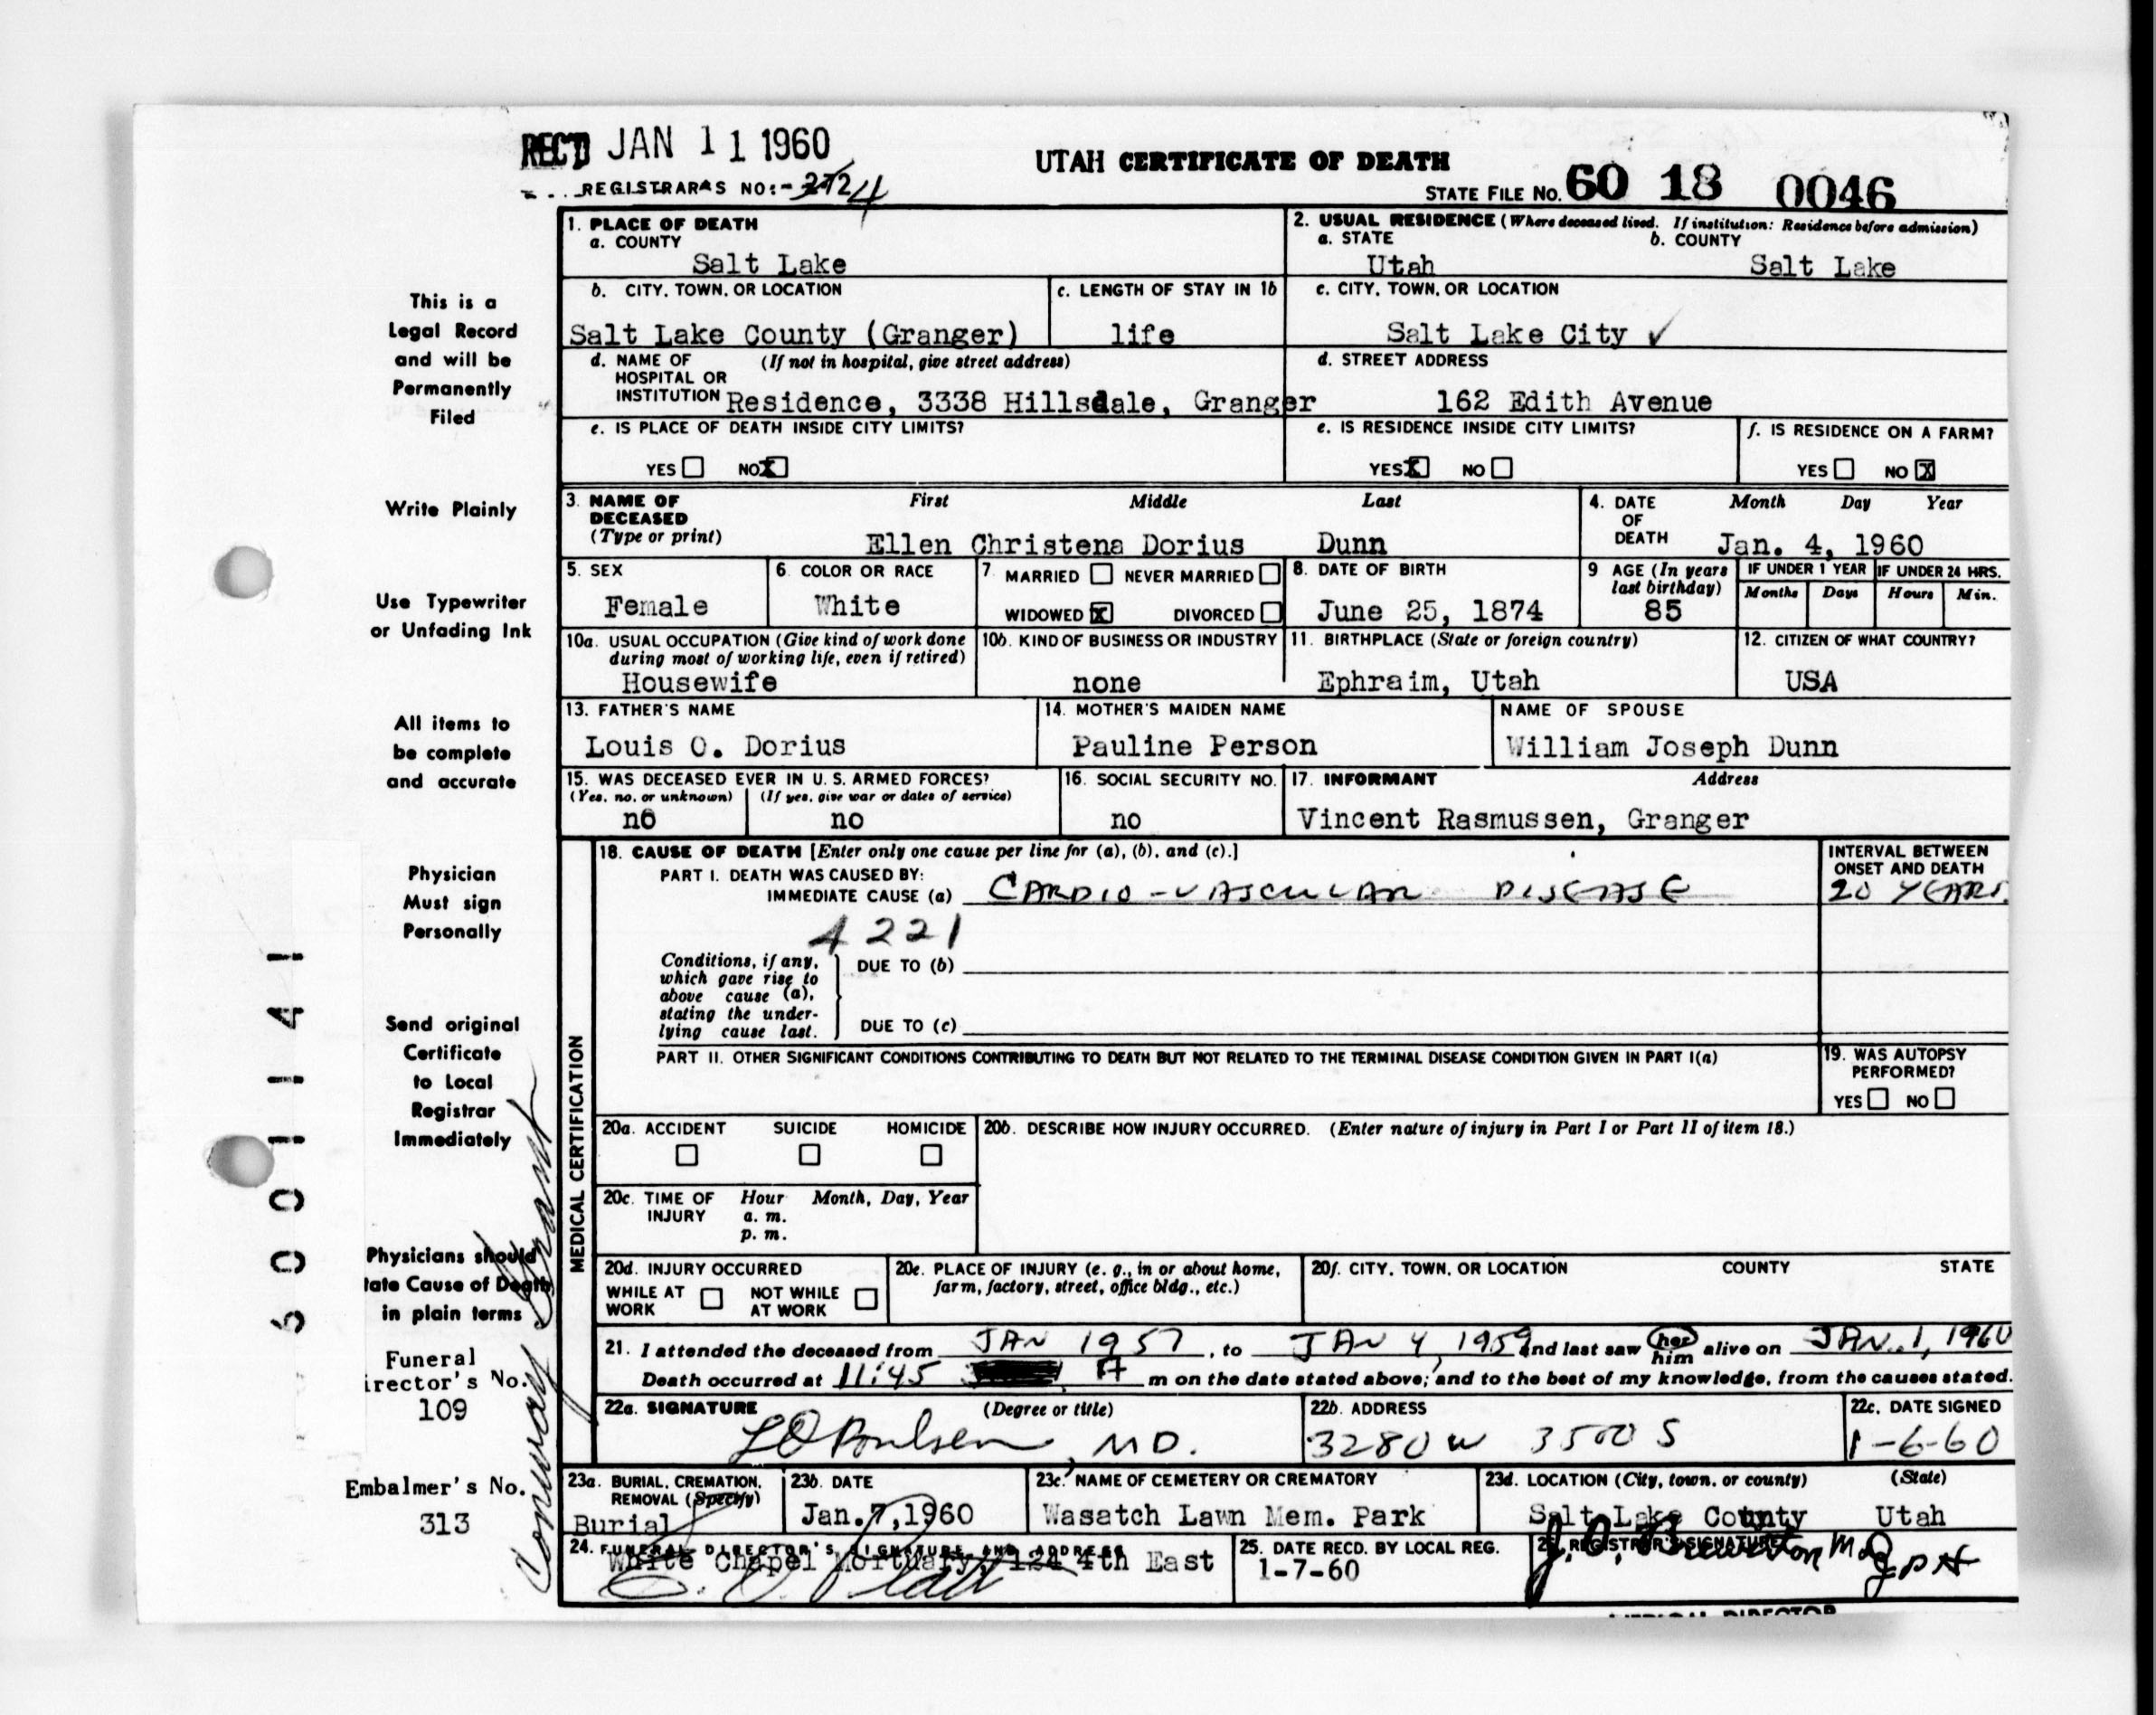 REC'D JAN 11 1960
UTAH CERTIFICATE OF DEATH
REGISTRAR'S NO:- 24
STATE FILE No. 60 18 0046
1. PLACE OF DEATH
a. COUNTY
Salt Lake
2. USUAL RESIDENCE (Where deceased lived. If institution: Residence before admission)
a. STATE b. COUNTY
Utah Salt Lake
b. CITY, TOWN, OR LOCATION
Salt Lake County (Granger)
c. LENGTH OF STAY IN 1b
life
c. CITY, TOWN, OR LOCATION
Salt Lake City ✓
d. NAME OF (If not in hospital, give street address)
HOSPITAL OR
INSTITUTION Residence, 3338 Hillsdale, Granger
d. STREET ADDRESS
162 Edith Avenue
e. IS PLACE OF DEATH INSIDE CITY LIMITS?
YES NO X
e. IS RESIDENCE INSIDE CITY LIMITS?
YES X NO
f. IS RESIDENCE ON A FARM?
YES NO X
3. NAME OF First Middle Last
DECEASED
(Type or print) Ellen Christena Dorius Dunn
4. DATE Month Day Year
OF
DEATH Jan. 4, 1960
5. SEX
Female
6. COLOR OR RACE
White
7. MARRIED NEVER MARRIED
WIDOWED X DIVORCED
8. DATE OF BIRTH
June 25, 1874
9 AGE (In years
last birthday)
85
IF UNDER 1 YEAR IF UNDER 24 HRS.
Months Days Hours Min.
10a. USUAL OCCUPATION (Give kind of work done
during most of working life, even if retired)
Housewife
10b. KIND OF BUSINESS OR INDUSTRY
none
11. BIRTHPLACE (State or foreign country)
Ephraim, Utah
12. CITIZEN OF WHAT COUNTRY?
USA
13. FATHER'S NAME
Louis O. Dorius
14. MOTHER'S MAIDEN NAME
Pauline Person
NAME OF SPOUSE
William Joseph Dunn
15. WAS DECEASED EVER IN U. S. ARMED FORCES?
(Yes, no, or unknown) (If yes, give war or dates of service)
no no
16. SOCIAL SECURITY NO.
no
17. INFORMANT Address
Vincent Rasmussen, Granger
MEDICAL CERTIFICATION
18. CAUSE OF DEATH [Enter only one cause per line for (a), (b), and (c).]
PART I. DEATH WAS CAUSED BY:
IMMEDIATE CAUSE (a) CARDIO-VASCULAR DISEASE
INTERVAL BETWEEN
ONSET AND DEATH
20 YEARS.
4221
Conditions, if any,
which gave rise to
above cause (a),
stating the under-
lying cause last.
DUE TO (b)
DUE TO (c)
PART II. OTHER SIGNIFICANT CONDITIONS CONTRIBUTING TO DEATH BUT NOT RELATED TO THE TERMINAL DISEASE CONDITION GIVEN IN PART I(a)
19. WAS AUTOPSY
PERFORMED?
YES NO
20a. ACCIDENT SUICIDE HOMICIDE
20b. DESCRIBE HOW INJURY OCCURRED. (Enter nature of injury in Part I or Part II of item 18.)
20c. TIME OF Hour Month, Day, Year
INJURY a. m.
p. m.
20d. INJURY OCCURRED
WHILE AT NOT WHILE
WORK AT WORK
20e. PLACE OF INJURY (e. g., in or about home,
farm, factory, street, office bldg., etc.)
20f. CITY, TOWN, OR LOCATION COUNTY STATE
21. I attended the deceased from JAN 1957, to JAN 4, 1959 and last saw her him alive on JAN. 1, 1960
Death occurred at 11:45 A m on the date stated above; and to the best of my knowledge, from the causes stated.
22a. SIGNATURE (Degree or title)
L O Poulsen, M D.
22b. ADDRESS
3280 W 3500 S
22c. DATE SIGNED
1-6-60
23a. BURIAL, CREMATION,
REMOVAL (Specify)
Burial
23b. DATE
Jan.7,1960
23c. NAME OF CEMETERY OR CREMATORY
Wasatch Lawn Mem. Park
23d. LOCATION (City, town, or county) (State)
Salt Lake County Utah
24. FUNERAL DIRECTOR'S SIGNATURE AND ADDRESS
White Chapel Mortuary, 124 4th East
25. DATE RECD. BY LOCAL REG.
1-7-60
REGISTRAR'S SIGNATURE
MEDICAL DIRECTOR
This is a
Legal Record
and will be
Permanently
Filed
Write Plainly
Use Typewriter
or Unfading Ink
All items to
be complete
and accurate
Physician
Must sign
Personally
Send original
Certificate
to Local
Registrar
Immediately
Physicians should
tate Cause of Death
in plain terms
Funeral
irector's No.
109
Embalmer's No.
313
6001141